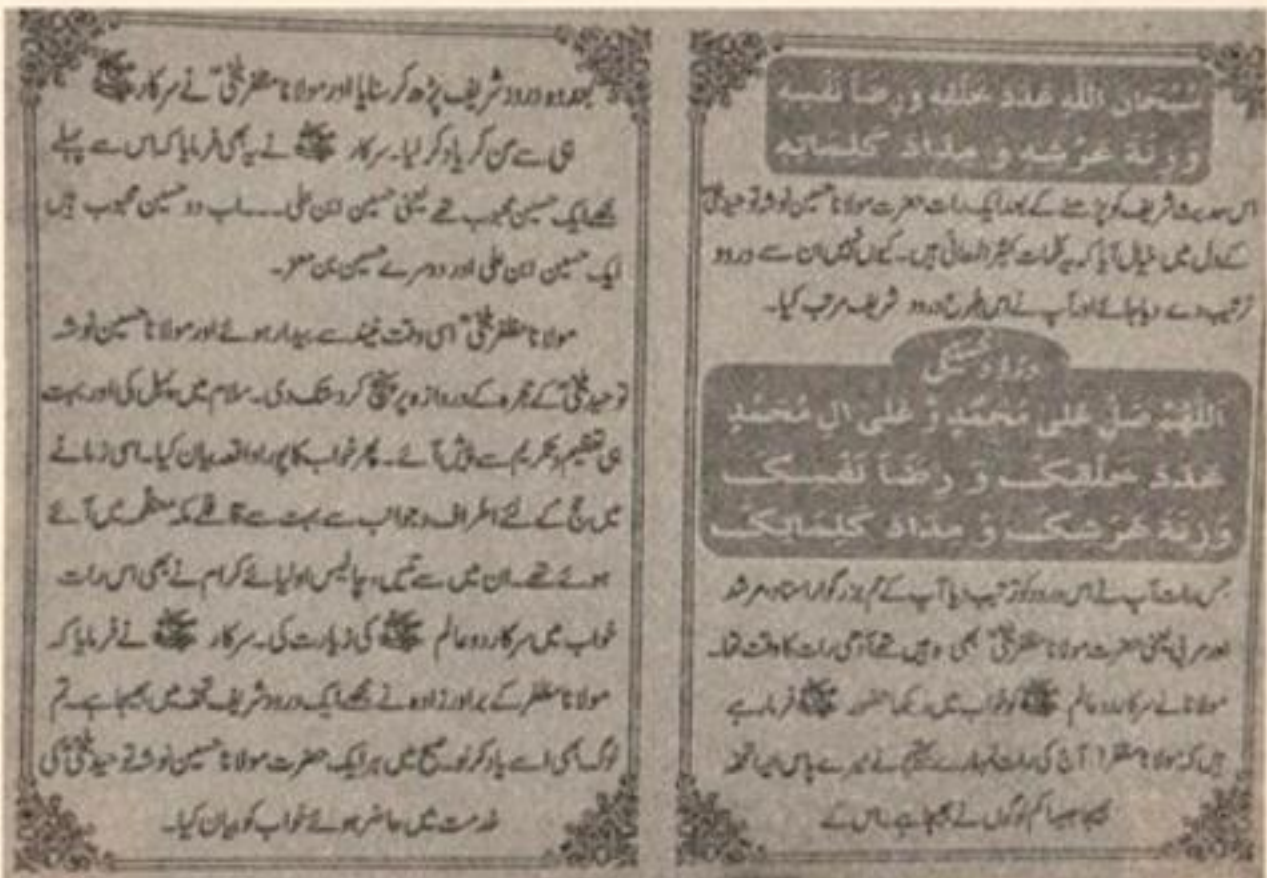 سُبْحَانَ اللهِ عَدَدَ خَلْقِهِ وَرِضَا نَفْسِهِ
وَزِنَةَ عَرْشِهِ وَ مِدَادَ كَلِمَاتِهِ
اس حدیث شریف کو پڑھنے کے بعد ایک رات حضرت مولانا حسین نوشہ توحید بلخیؒ
کے دل میں خیال آیا کہ یہ کلمات کثیر المعانی ہیں۔ کیوں نہیں ان سے درود
ترتیب دے دیا جائے اور آپ نے اس طرح درود شریف مرتب کیا۔
درود حسینی
اَللّٰهُمَّ صَلِّ عَلٰی مُحَمَّدٍ وَّ عَلٰی اٰلِ مُحَمَّدٍ
عَدَدَ خَلْقِكَ وَ رِضَا نَفْسِكَ
وَزِنَةَ عَرْشِكَ وَ مِدَادَ كَلِمَاتِكَ
جس رات آپ نے اس درود کو ترتیب دیا آپ کے عم بزرگوار استاد مرشد
اور مربی یعنی حضرت مولانا مظفر بلخیؒ بھی وہیں تھے آدھی رات کا وقت تھا۔
مولانا نے سرکار دو عالم ﷺ کو خواب میں دیکھا حضور ﷺ فرما رہے
ہیں کہ مولانا مظفر! آج کی رات تمہارے بھتیجے نے میرے پاس ایسا تحفہ
بھیجا جیسا کم لوگوں نے بھیجا ہے اس کے
بعد وہ درود شریف پڑھ کر سنایا اور مولانا مظفر بلخیؒ نے سرکار ﷺ
ہی سے سن کر یاد کر لیا۔ سرکار ﷺ نے یہ بھی فرمایا کہ اس سے پہلے
مجھے ایک حسین محبوب تھے یعنی حسین ابن علی۔۔۔ اب دو حسین محبوب ہیں
ایک حسین ابن علی اور دوسرے حسین بن معز۔
مولانا مظفر بلخیؒ اسی وقت نیند سے بیدار ہوئے اور مولانا حسین نوشہ
توحید بلخیؒ کے حجرہ کے دروازہ پر پہنچ کر دستک دی۔ سلام میں پہل کی اور بہت
ہی تعظیم و تکریم سے پیش آئے۔ پھر خواب کا پورا واقعہ بیان کیا۔ اسی زمانے
میں حج کے لئے اطراف و جوانب سے بہت سے قافلے مکہ معظمہ میں آئے
ہوئے تھے۔ ان میں سے تیس، چالیس اولیائے کرام نے بھی اس رات
خواب میں سرکار دو عالم ﷺ کی زیارت کی۔ سرکار ﷺ نے فرمایا کہ
مولانا مظفر کے برادر زادہ نے مجھے ایک درود شریف تحفہ میں بھیجا ہے۔ تم
لوگ بھی اسے یاد کر لو۔ صبح میں ہر ایک حضرت مولانا حسین نوشہ توحید بلخیؒ کی
خدمت میں حاضر ہوئے خواب کو بیان کیا۔